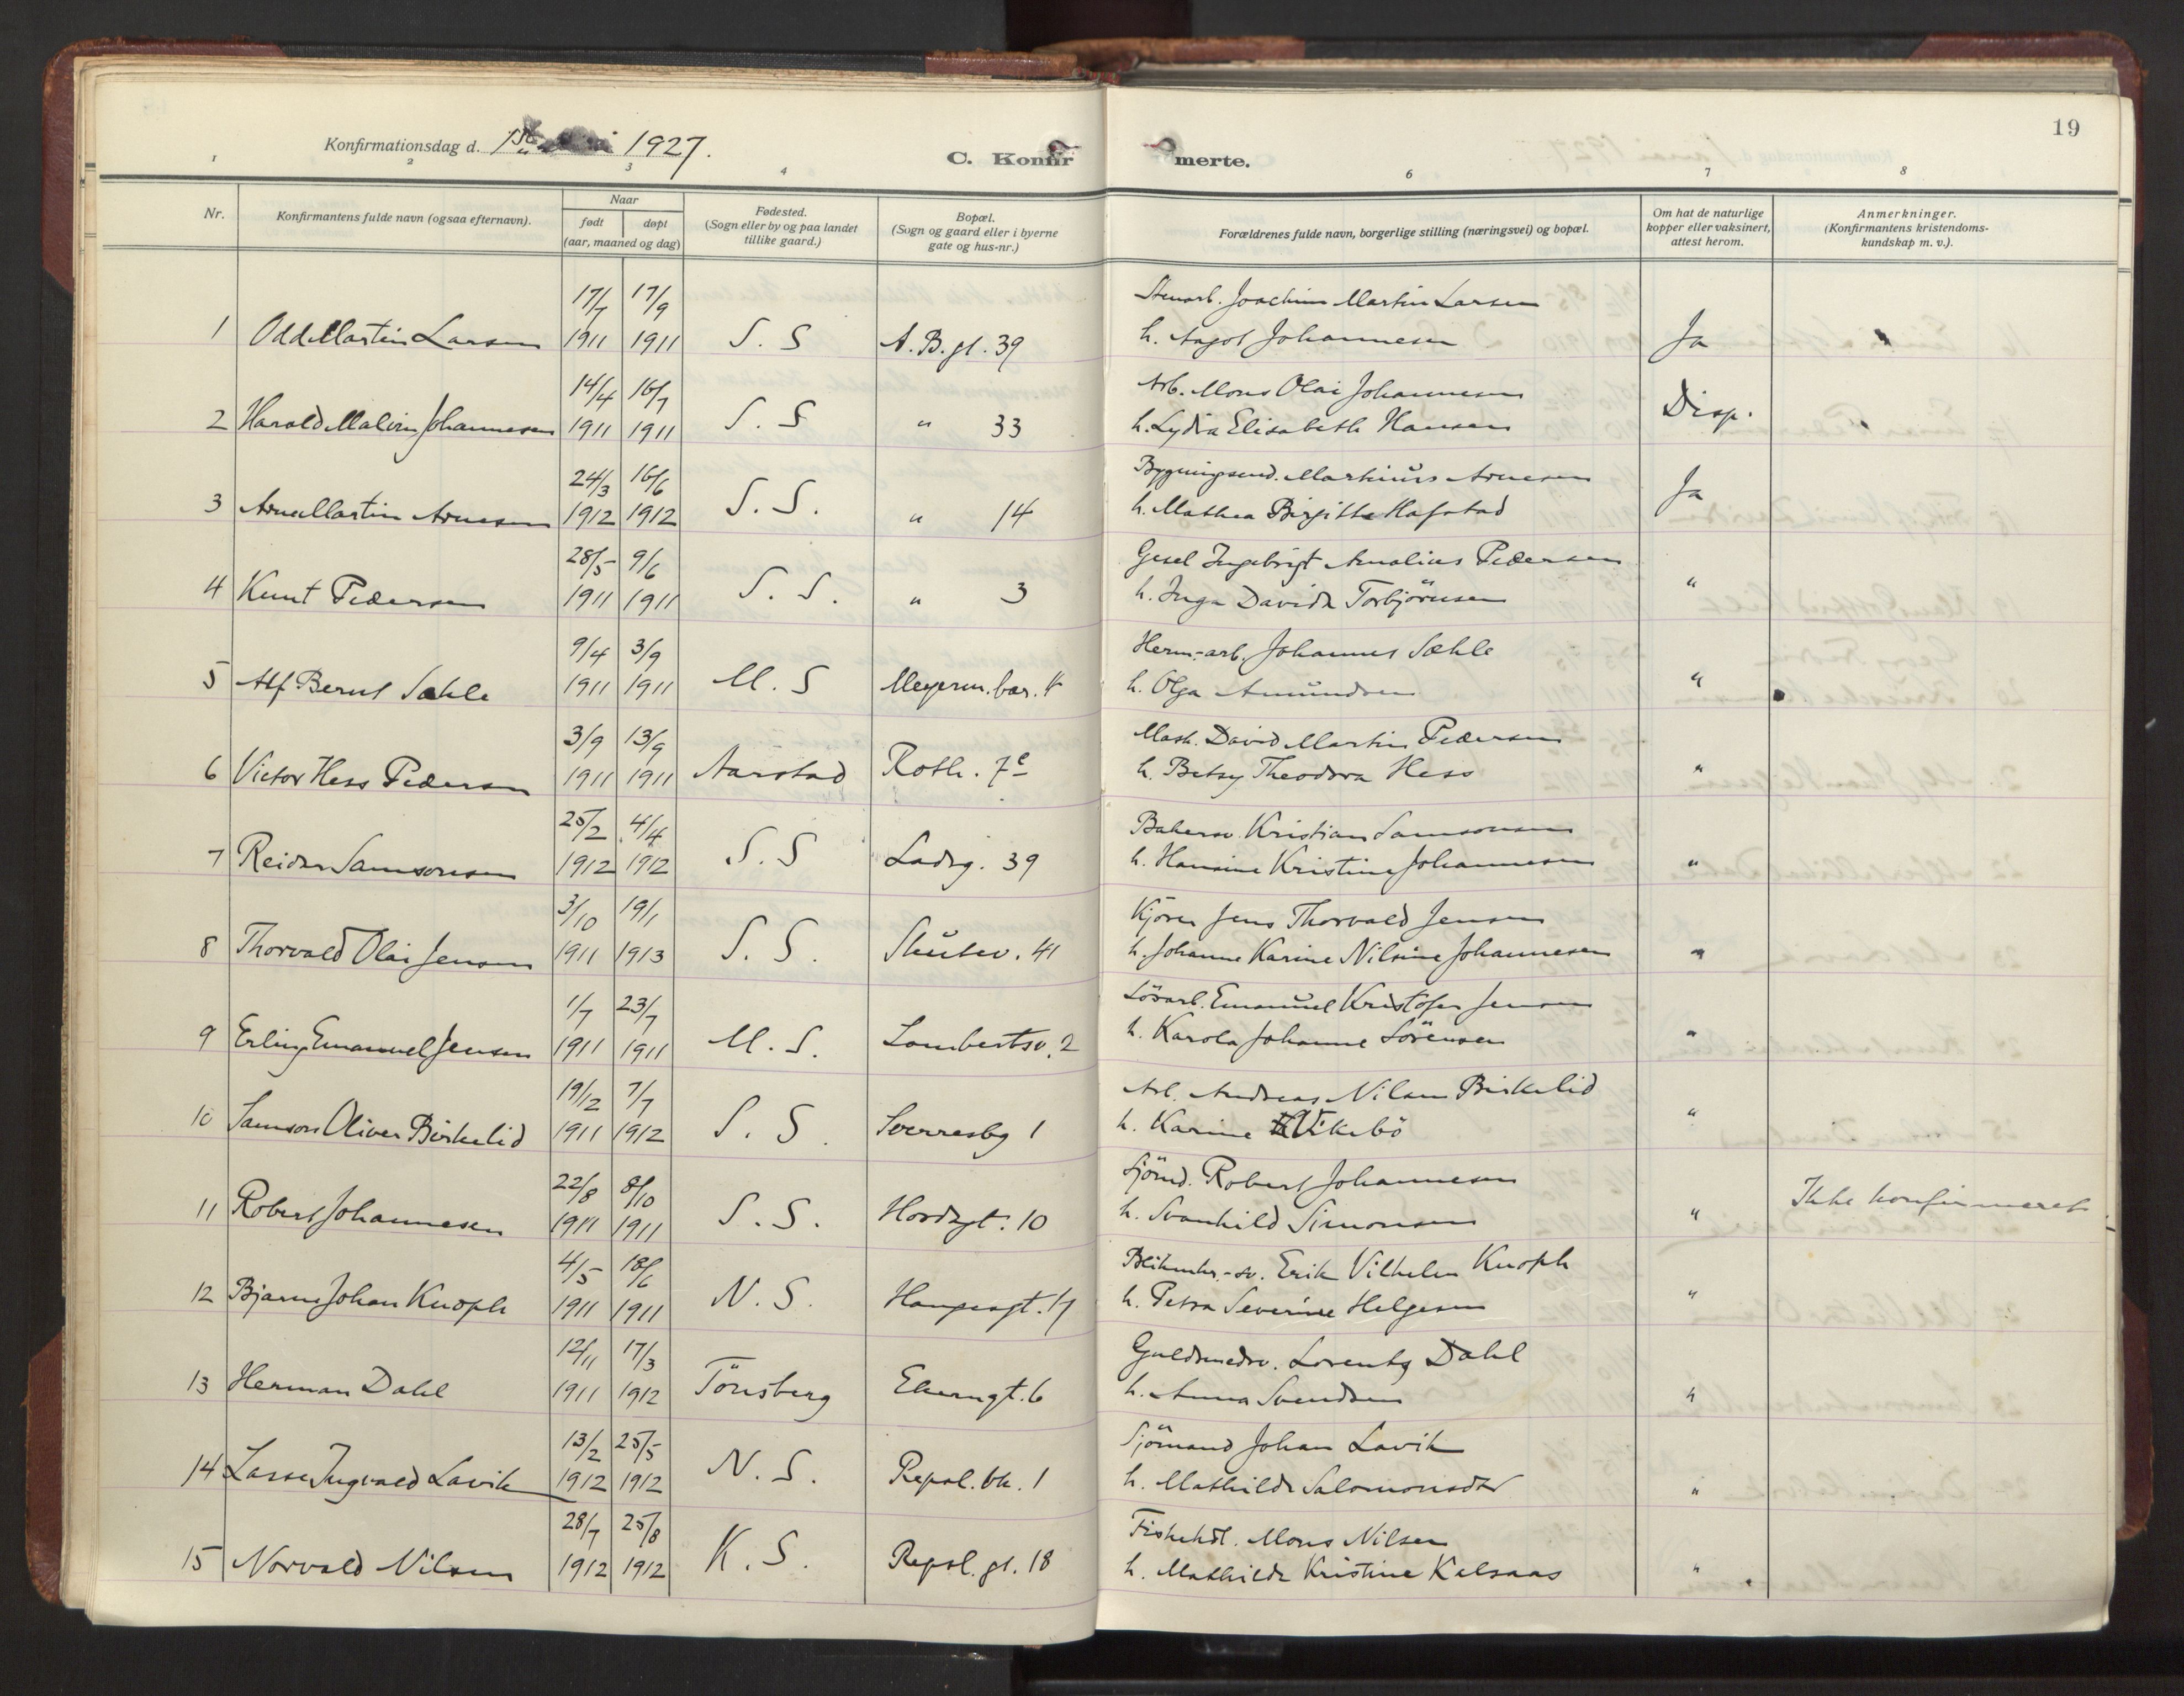 19
Konfirmationsdag d. 1927.
C. Konfirmerte.
1 2 3 4 6 7 8
Nr.
Konfirmantens fulde navn (ogsaa efternavn).
Naar
født døpt
(aar, maaned og dag)
Fødested.
(Sogn eller by og paa landet
tillike gaard.)
Bopæl.
(Sogn og gaard eller i byerne
gate og hus-nr.)
Forældrenes fulde navn, borgerlige stilling (næringsvei) og bopæl.
Om hat de naturlige
kopper eller vaksinert,
attest herom.
Anmerkninger.
(Konfirmantens kristendoms-
kundskap m. v.).
17/7 17/9 Stenarb. Joachim Martin Larsen
1 Odd Martin Larsen 1911 1911 S. S A. B. gt. 39 h. Aagot Johannesen Ja
14/4 16/7 Arb. Mons Olai Johannesen
2 Harald Malvin Johannesen 1911 1911 S. S " 33 h. Lydia Elisabeth Hansen Disp.
24/3 16/6 Bygningssnd. Martinius Arnesen
3 Arne Martin Arnesen 1912 1912 S. S. " 14 h. Mathea Birgitte Hafstad Ja
28/5 9/6 Gesel Ingebrigt Amalius Pedersen
4 Knut Pedersen 1911 1911 S. S. " 3 h. Inga Davida Torbjörnsen "
9/4 3/9 Herm.-arb. Johannes Sæhle
5 Alf Bernt Sæhle 1911 1911 M. S Meyerm. bar. 4 h. Olga Amundsen "
3/9 13/9 Mask. David Martin Pedersen
6 Victor Hess Pedersen 1911 1911 Aarstad Roth. 7e h. Betsy Theodora Hess "
25/2 4/4 Bakersv. Kristian Samsonsen
7 Reidar Samsonsen 1912 1912 S. S Ladeg. 39 h. Hansine Kristine Johannesen "
3/10 19/1 Kjörer Jens Thorvald Jensen
8 Thorvald Olai Jensen 1911 1913 S. S. Skutev. 41 h. Johanne Karine Nilsine Johannesen "
1/7 23/7 Lösarb. Emanuel Kristofer Jensen
9 Erling Emanuel Jensen 1911 1911 M. S. Lombertsv. 2 h. Karola Johanne Sörensen "
19/12 7/7 Arb. Andreas Nilsen Birkelid
10 Samson Oliver Birkelid 1911 1912 S. S. Sverresbg 1 h. Karine Vikebö "
22/8 8/10 Sjömd. Robert Johannesen
11 Robert Johannesen 1911 1911 S. S. Hordagt. 10 h. Svanhild Simonsen " Ikke konfirmeret
4/5 18/6 Blikensl.-sv. Erik Vilhelm Knoph
12 Bjarne Johan Knoph 1911 1911 N. S. Haugesgt. 17 h. Petra Severine Helgesen "
12/11 17/3 Guldsmedsv. Lorentz Dahl
13 Herman Dahl 1911 1912 Tönsberg Ekerngt. 6 h. Anna Svendsen "
13/2 25/5 Sjömand Johan Lavik
14 Lasse Ingvald Lavik 1912 1912 N. S. Repsl. bk. 1 h. Mathilde Salomonsdtr "
28/7 25/8 Fiskehdl. Mons Nilsen
15 Norvald Nilsen 1912 1912 K. S. Repsl. gt. 18 h. Mathilde Kristine Kalsaas "